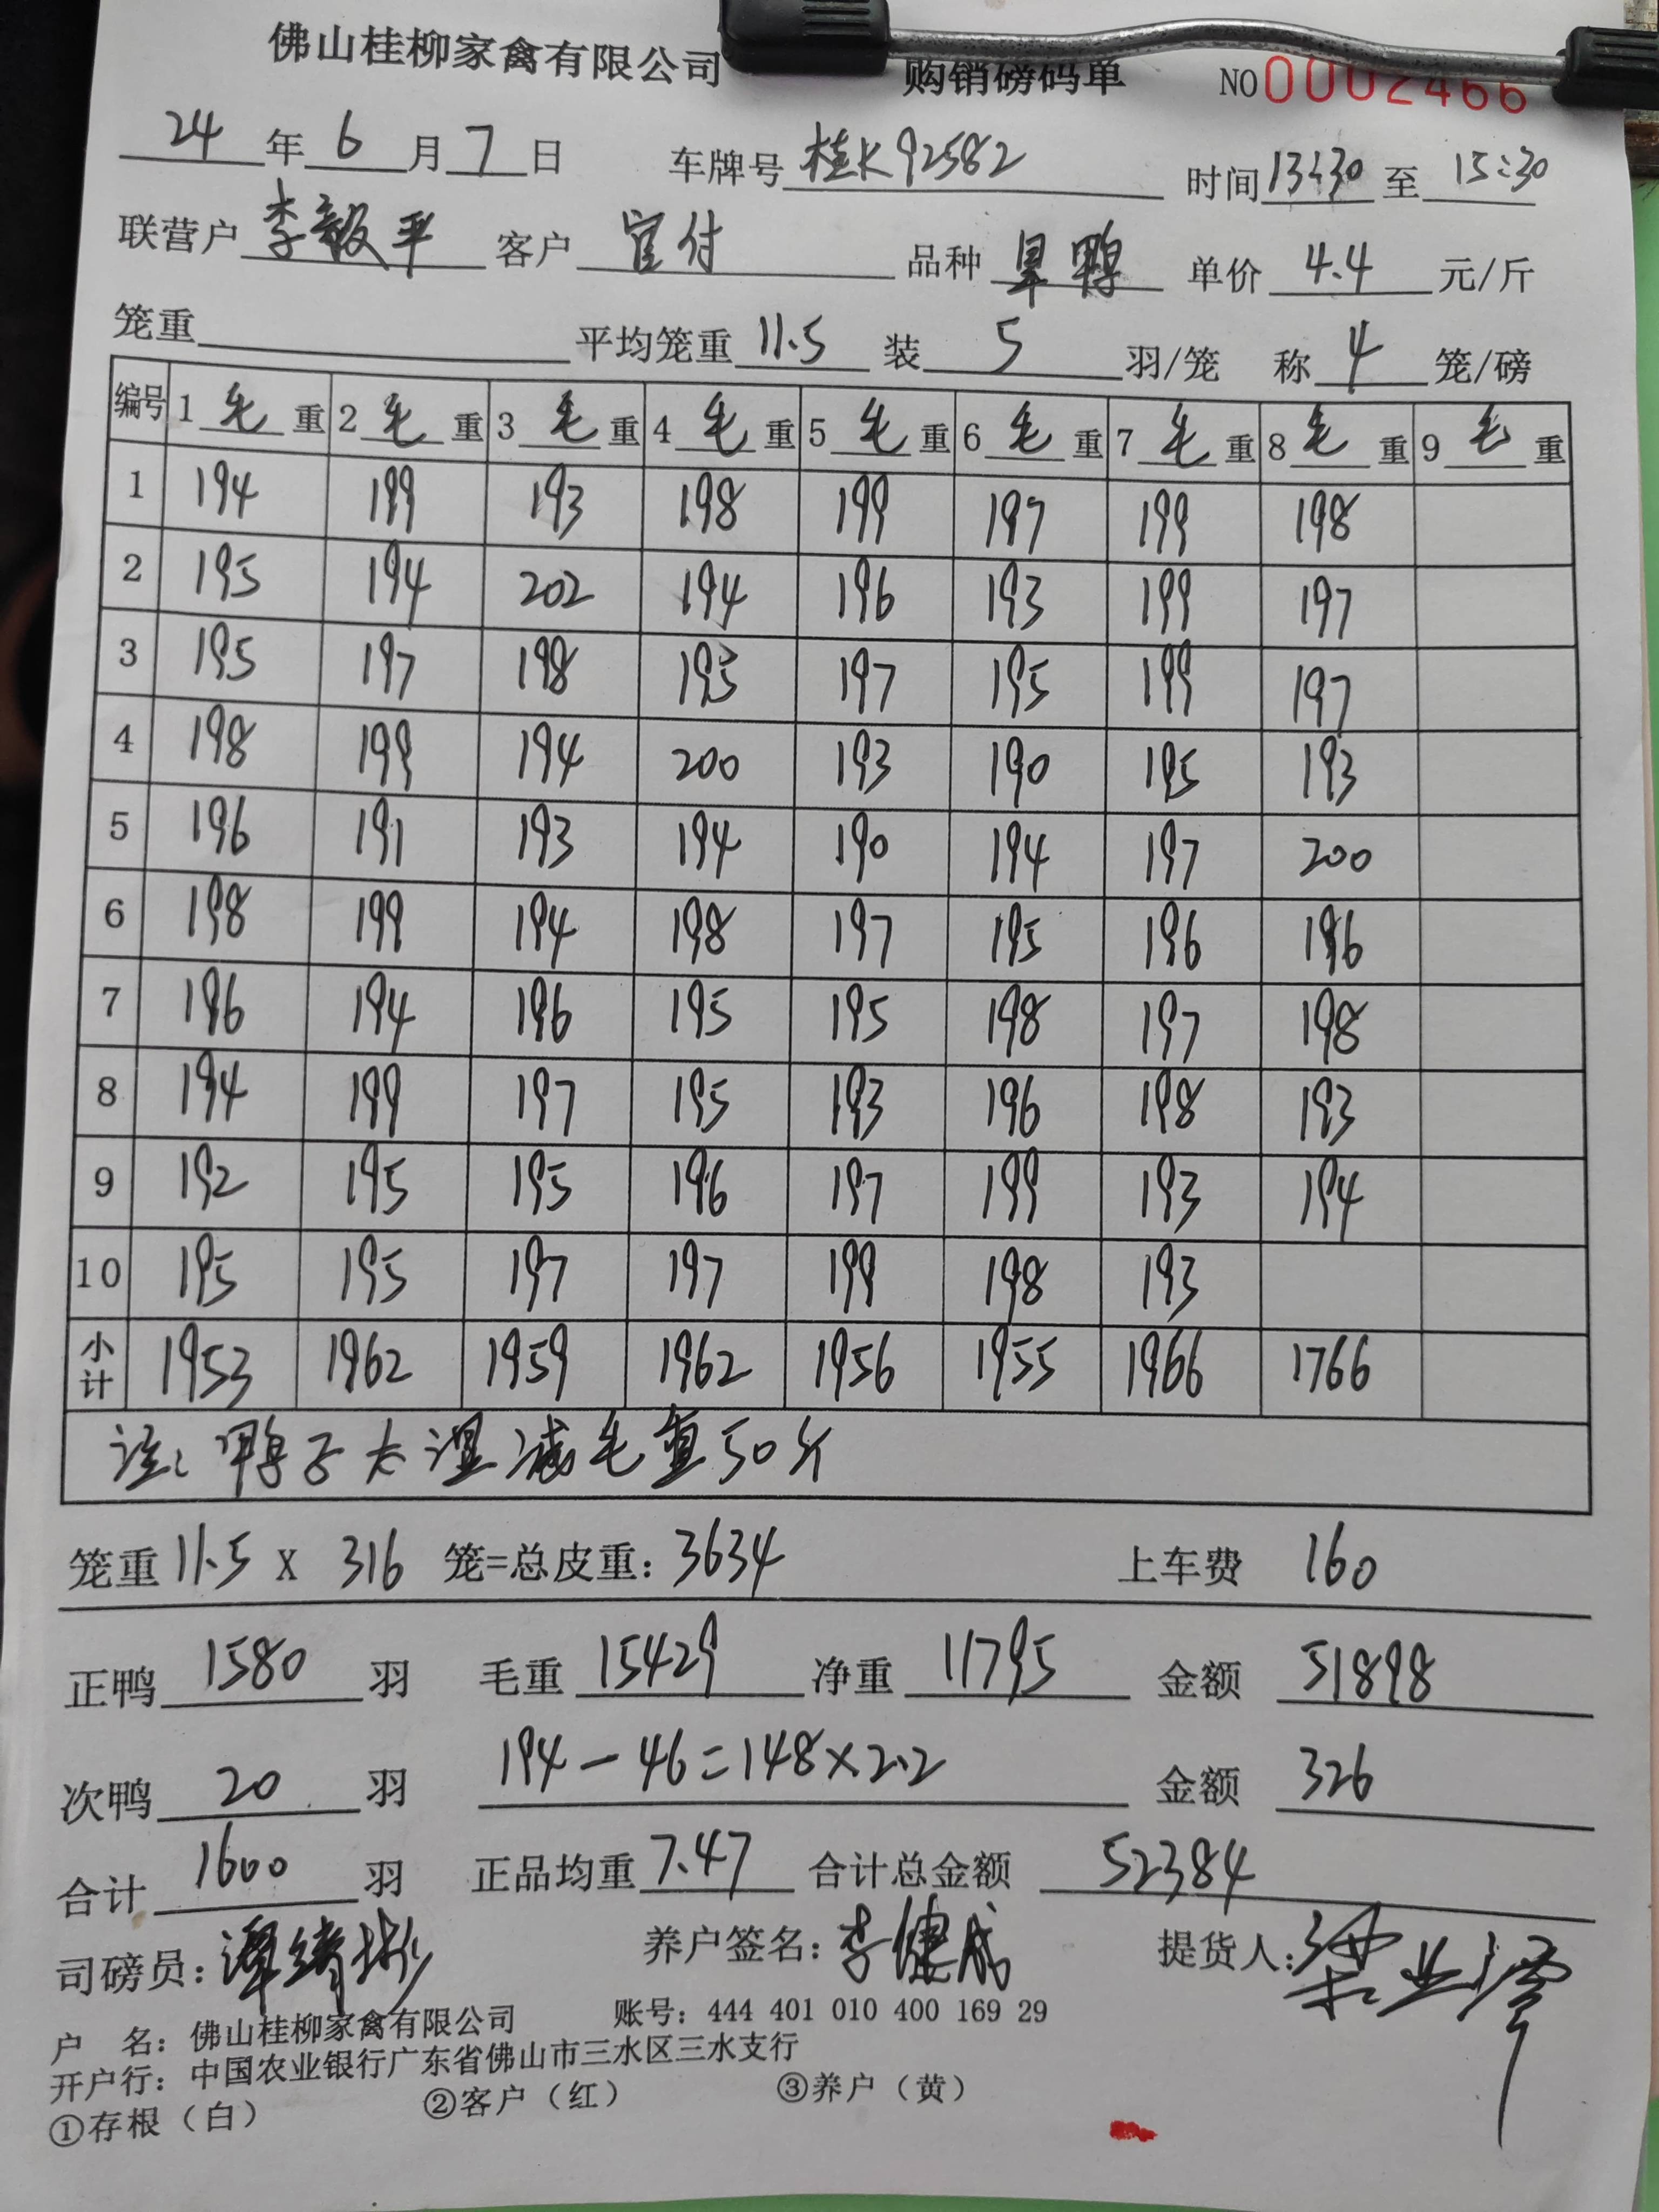 佛山桂柳家禽有限公司 购销磅码单 NO 0002466
24 年 6 月 7 日 车牌号 桂K92582 时间 13:30 至 15:30
联营户 李毅平 客户 官付 品种 旱鸭 单价 4.4 元/斤
笼重 平均笼重 11.5 装 5 羽/笼 称 4 笼/磅
编号 1 毛 重 2 毛 重 3 毛 重 4 毛 重 5 毛 重 6 毛 重 7 毛 重 8 毛 重 9 毛 重
1 194 199 193 198 199 197 199 198
2 195 194 202 194 196 193 199 197
3 195 197 198 195 197 195 199 197
4 198 199 194 200 193 190 195 193
5 196 191 193 194 190 194 197 200
6 198 199 194 198 197 195 196 196
7 196 194 196 195 195 198 197 198
8 194 199 197 195 193 196 198 193
9 192 195 195 196 197 199 193 194
10 195 195 197 197 199 198 193
小计 1953 1962 1959 1962 1956 1955 1966 1766
注: 鸭子太湿减毛重50斤
笼重 11.5 X 316 笼=总皮重: 3634 上车费 160
正鸭 1580 羽 毛重 15429 净重 11795 金额 51898
次鸭 20 羽 194-46=148×2.2 金额 326
合计 1600 羽 正品均重 7.47 合计总金额 52384
司磅员: 养户签名: 李健成 提货人: 梁业
户 名: 佛山桂柳家禽有限公司 账号: 444 401 010 400 169 29
开户行: 中国农业银行广东省佛山市三水区三水支行
①存根（白） ②客户（红） ③养户（黄）